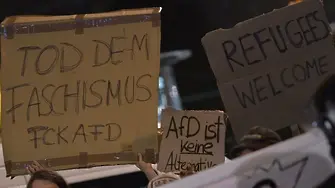 TOD DEM
FASCHISMUS
FCK AFD
AfD IST
keine
Alternative
REFUGEES
WELCOME